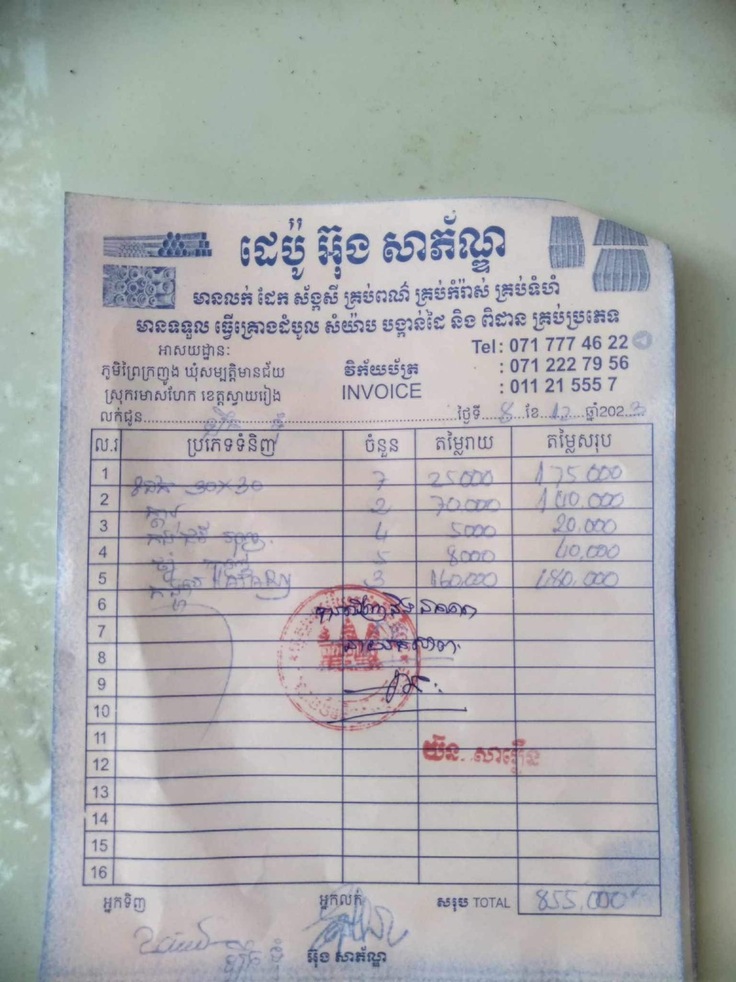 ដេប៉ូ អ៊ុង សាភ័ណ្ឌ
មានលក់ ដែក ស័ង្កសី គ្រប់ពណ៌ គ្រប់កំរ៉ាស់ គ្រប់ទំហំ
មានទទួល ធ្វើគ្រោងដំបូល សំយ៉ាប បង្កាន់ដៃ និង ពិដាន គ្រប់ប្រភេទ
អាសយដ្ឋានៈ
ភូមិព្រៃក្រញូង ឃុំសម្បត្តិមានជ័យ
ស្រុករមាសហែក ខេត្តស្វាយរៀង
វិក័យប័ត្រ
INVOICE
Tel: 071 777 46 22
: 071 222 79 56
: 011 21 555 7
លក់ជូន ថ្ងៃទី 8 ខែ 12 ឆ្នាំ202
ល.រ ប្រភេទទំនិញ ចំនួន តម្លៃរាយ តម្លៃសរុប
1 30x30 7 25000 175.000
2 2 70.000 140.000
3 4 5000 20.000
4 5 8000 40,000
5 3 160,000 480.000
6
7
8
9
10
11
12
យ៊ន. សារឿន
13
14
15
16
អ្នកទិញ អ្នកលក់ សរុប TOTAL 855,000
អ៊ុង សាភ័ណ្ឌ